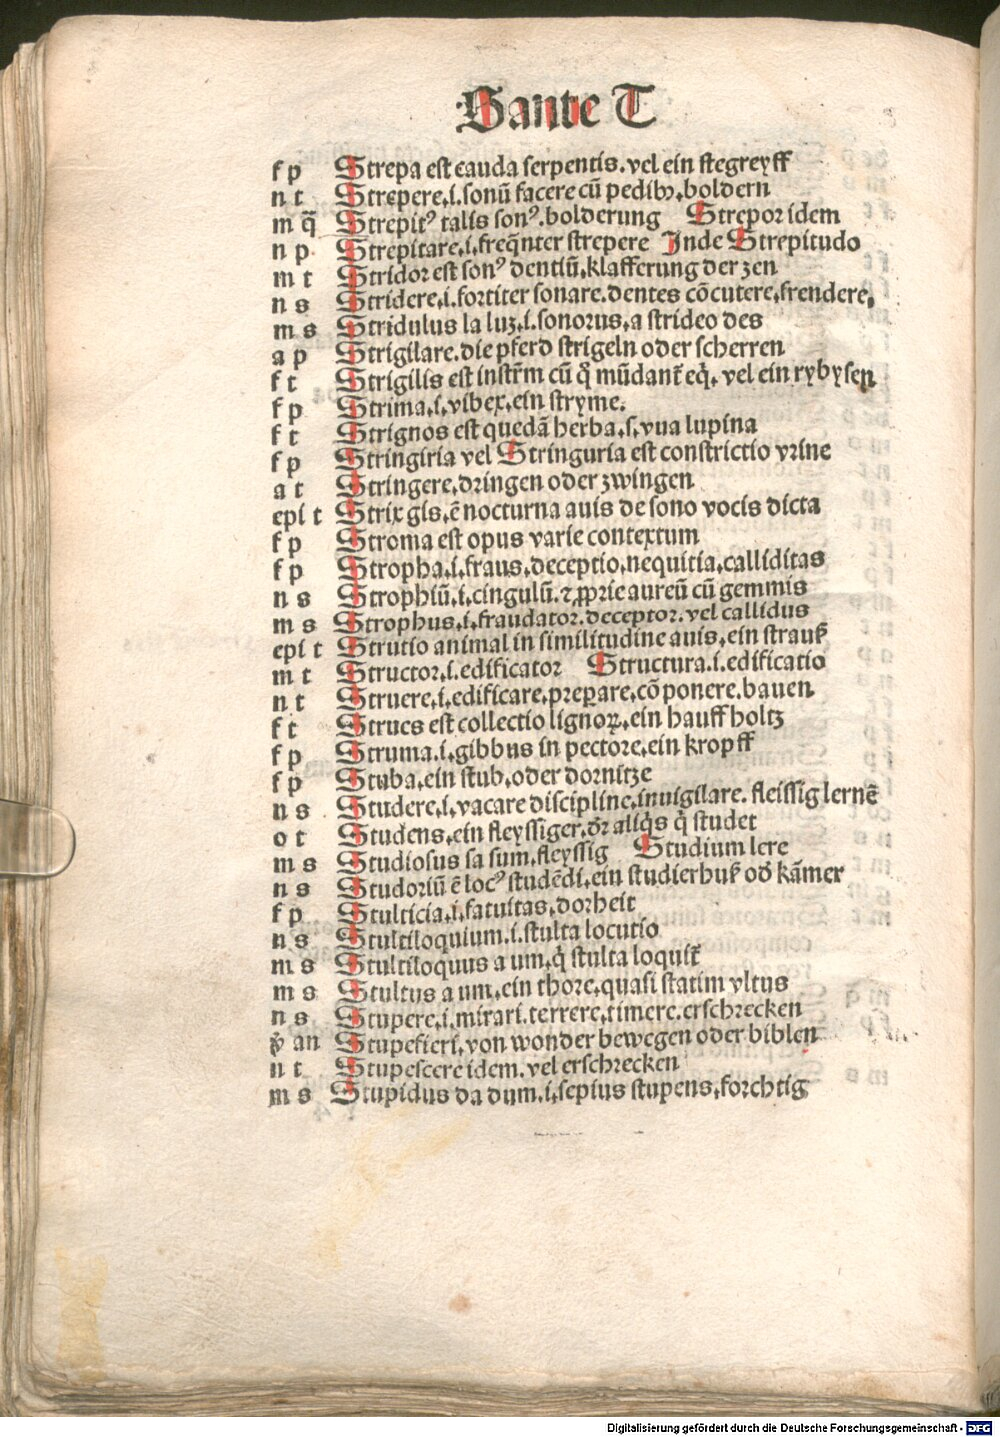 S ante T
f p Strepa est cauda serpentis. vel ein stegreyff
n t Strepere .i. sonū facere cū pedibꝰ. boldern
m q̄ Strepitꝰ talis sonꝰ. bolderung Strepor idem
n p Strepitare .i. freq̄nter strepere Inde Strepitudo
m t Stridor est sonꝰ dentiū. klafferung der zen
n s Stridere .i. fortiter sonare. dentes cōcutere, frendere,
m s Stridulus la luʒ .i. sonorus, a strideo des
a p Strigilare. die pferd strigeln oder scherren
f t Strigilis est instr̄m cū q̊ mūdant̄ eq̇. vel ein rybysen
f p Strima .i. vibex, ein stryme.
f t Strignos est quedā herba .s. vua lupina
f p Stringiria vel Stringuria est constrictio vrine
a t Stringere, dringen oder zwingen
epi t Strix gis, ē nocturna auis de sono vocis dicta
f p Stroma est opus varie contextum
f p Stropha .i. fraus, deceptio, nequitia, calliditas
n s Strophiū .i. cingulū. ⁊ ꝓprie aureū cū gemmis
m s Strophus .i. fraudator. deceptor. vel callidus
epi t Strutio animal in similitudine auis, ein strauß
m t Structor .i. edificator Structura .i. edificatio
n t Struere .i. edificare, preꝑare, cōponere. bauen
f t Strues est collectio lignoꝝ, ein hauff holtz
f p Struma .i. gibbus in pectore, ein kropff
f p Stuba, ein stub, oder dornitze
n s Studere .i. vacare discipline, inuigilare. fleissig lernē
o t Studens, ein fleyssiger, dr̄ aliq̇s q̇ studet
m s Studiosus sa sum, fleyssig Studium lere
n s Studoriū ē locꝰ studēdi, ein studierhuß od̄ kāmer
f p Stulticia .i. fatuitas, dorheit
n s Stultiloquium .i. stulta locutio
m s Stultiloquus a um, q̇ stulta loquit̄
m s Stultus a um, ein thore, quasi statim vltus
n s Stupere .i. mirari. terrere, timere. erschrecken
ꝟ an Stupefieri, von wonder bewegen oder biblen
n t Stupescere idem. vel erschrecken
m s Stupidus da dum .i. sepius stupens, forchtig
Digitalisierung gefördert durch die Deutsche Forschungsgemeinschaft - DFG